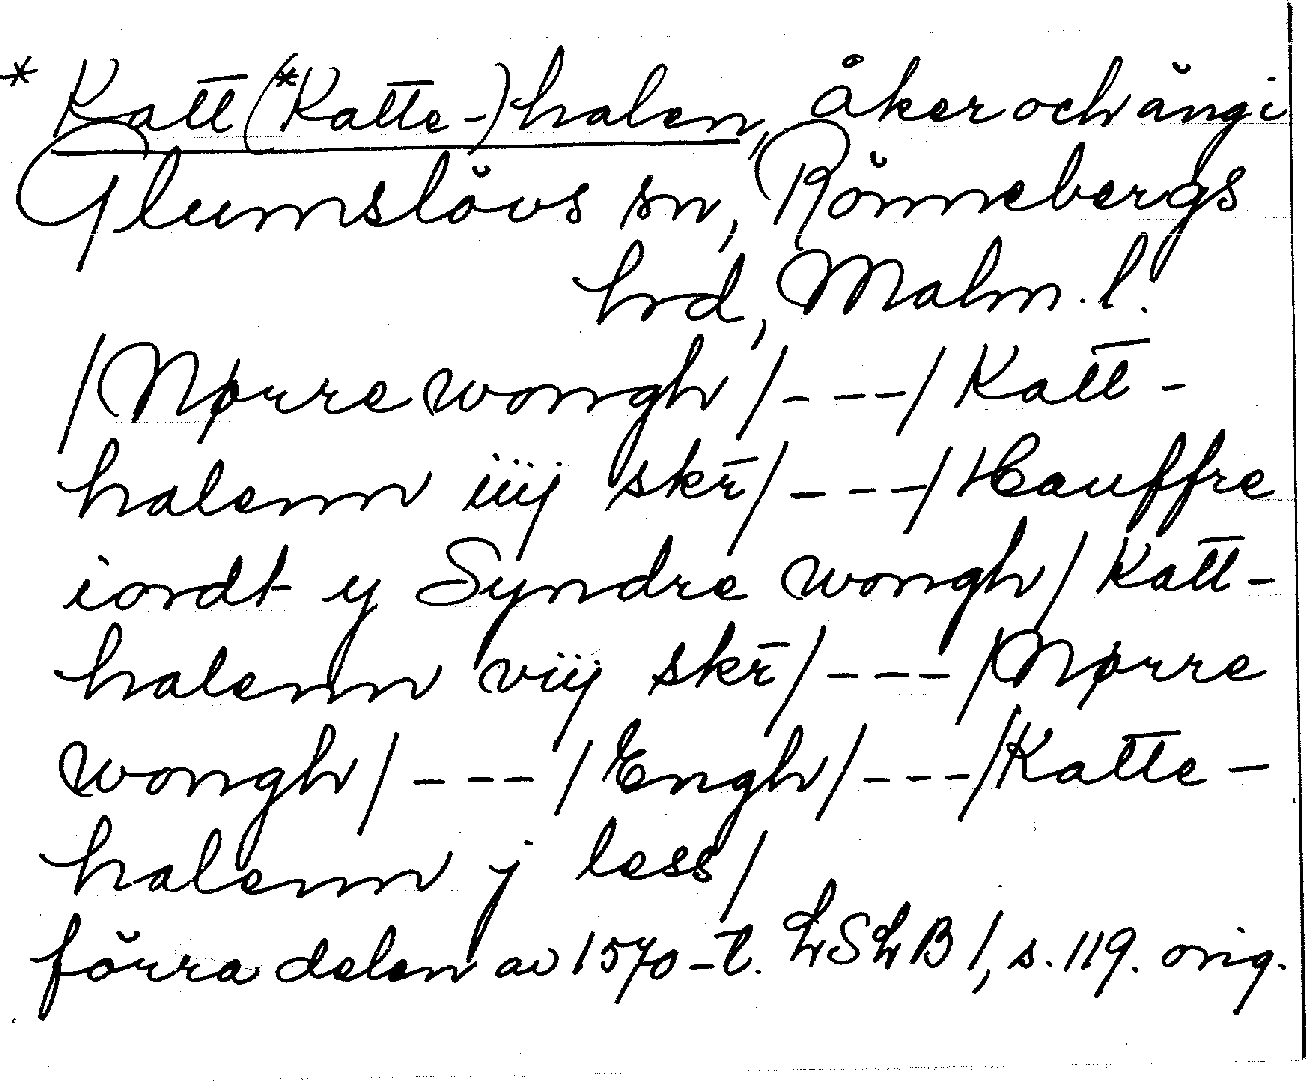 * Katt(*Katte-)halen, åker och äng i
Glumslövs sn, Rönnebergs
hrd, Malm. l.
/Nørre wongh/---/Katt-
halenn iiij skr̄/---/Hauffre
iordt y Syndre wongh/Katt-
halenn viij skr̄/---/Nørre
wongh/---/Engh/---/Katte-
halenn j less/
förra delen av 1570-t. LSLB 1, s. 119. orig.